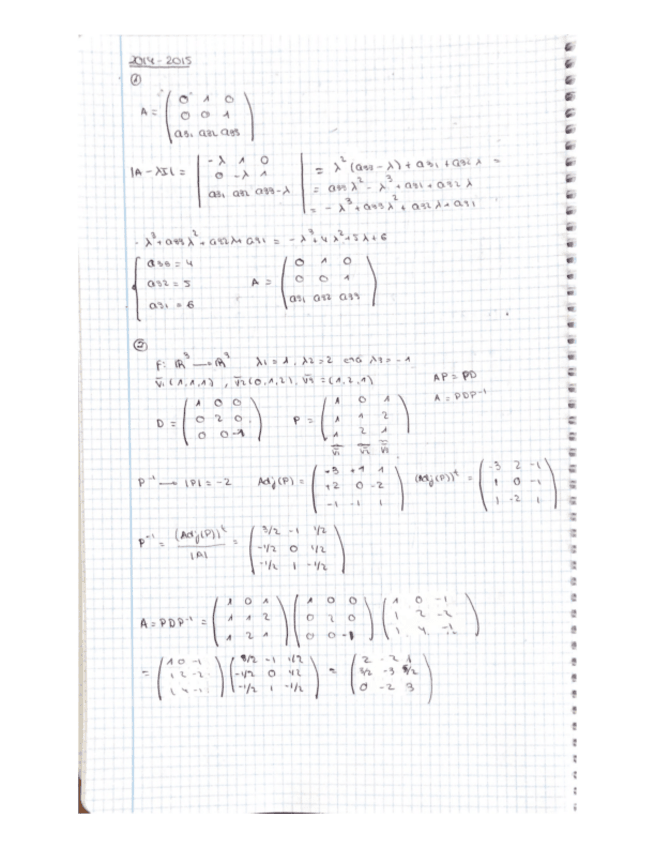 2014-2015
①
A = ( 0 1 0
0 0 1
a31 a32 a33 )
|A - λI| = | -λ 1 0
0 -λ 1
a31 a32 a33-λ | = λ² (a33 - λ) + a31 + a32 λ =
= a33 λ² - λ³ + a31 + a32 λ
= - λ³ + a33 λ² + a32 λ + a31
- λ³ + a33 λ² + a32 λ + a31 = - λ³ + 4 λ² + 5 λ + 6
{ a33 = 4
a32 = 5
a31 = 6
A = ( 0 1 0
0 0 1
a31 a32 a33 )
②
F: ℝ³ → ℝ³ λ1 = 1, λ2 = 2 eta λ3 = -1
v̄1 (1,1,1), v̄2 (0,1,2), v̄3 = (1,2,1)
AP = PD
A = PDP⁻¹
D = ( 1 0 0
0 2 0
0 0 -1 )
P = ( 1 0 1
1 1 2
1 2 1 )
P⁻¹ → |P| = -2
Adj(P) = ( -3 +1 1
+2 0 -2
-1 -1 1 )
(Adj(P))ᵗ = ( -3 2 -1
1 0 -1
1 -2 1 )
P⁻¹ = (Adj(P))ᵗ / |A| = ( 3/2 -1 1/2
-1/2 0 1/2
-1/2 1 -1/2 )
A = PDP⁻¹ = ( 1 0 1
1 1 2
1 2 1 ) ( 1 0 0
0 2 0
0 0 -1 ) ( 1 0 -1
1 2 -2
1 4 -1 )
= ( 1 0 -1
1 2 -2
1 4 -1 ) ( 3/2 -1 1/2
-1/2 0 1/2
-1/2 1 -1/2 ) = ( 2 -2 1
3/2 -3 5/2
0 -2 3 )